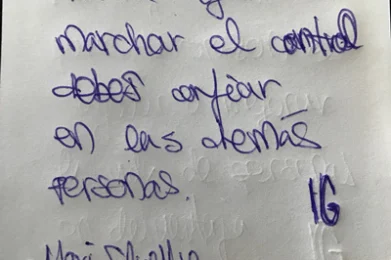 marchar el control
debes confiar
en las demás
personas.
16